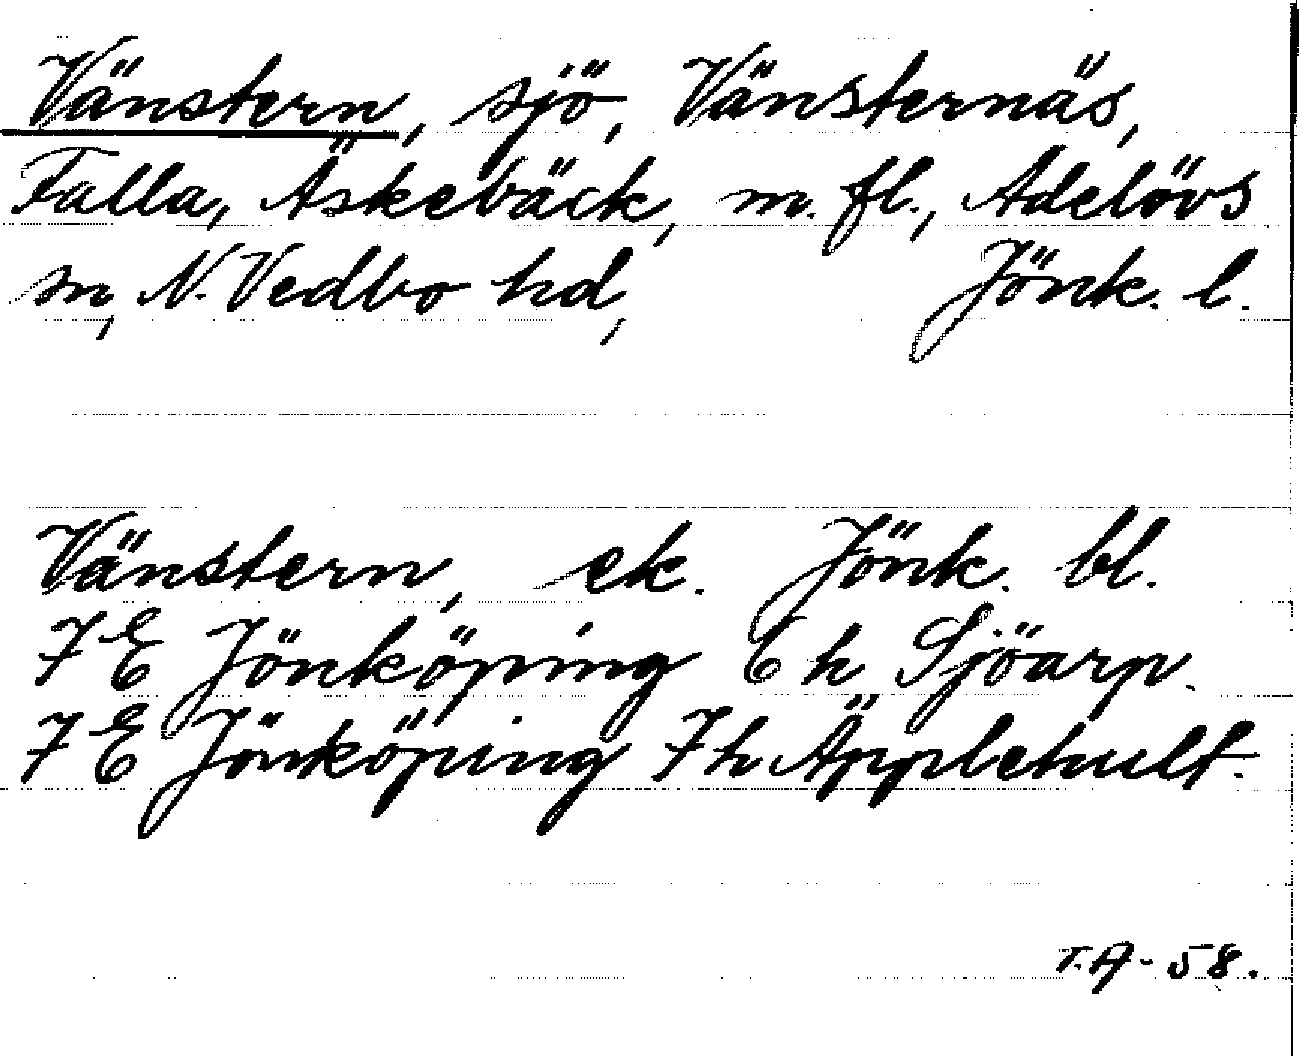 Vänstern, sjö, Vänsternäs,
Falla, Äskebäck, m. fl., Adelövs
sn, N. Vedbo hd, Jönk. l.
Vänstern, ek. Jönk. bl.
7 E Jönköping 6 h Sjöarp.
7 E Jönköping 7 h Äpplehult.
T.A-58.